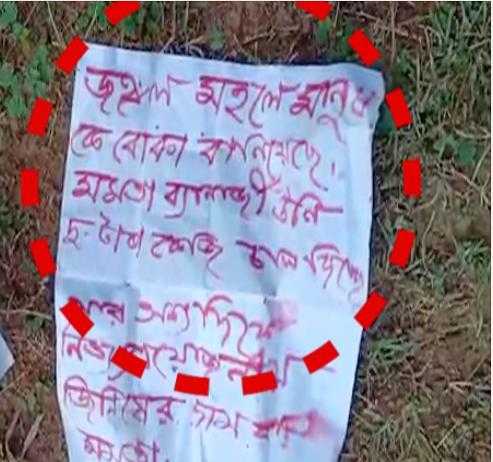 জঙ্গল মহলে মানুষ
কে বোকা বানিয়েছে,
মমতা ব্যানার্জী উনি
দু-টাকা কেজি চাল দিচ্ছে
আর অন্যদিকে
নিত্য প্রয়োজনীয়
জিনিষের দাম
ক্ষমতা